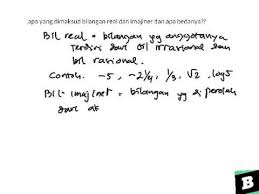 apa yang dimaksud bilangan real dan imajiner dan apa bedanya??
Bil real = bilangan yg anggotanya
terdiri dari bil irrasional dan
bil rasional.
Contoh. -5, -2 1/4, 1/3, √2, log 5
Bil. imajinet = bilangan yg di peroleh
dari ak
B